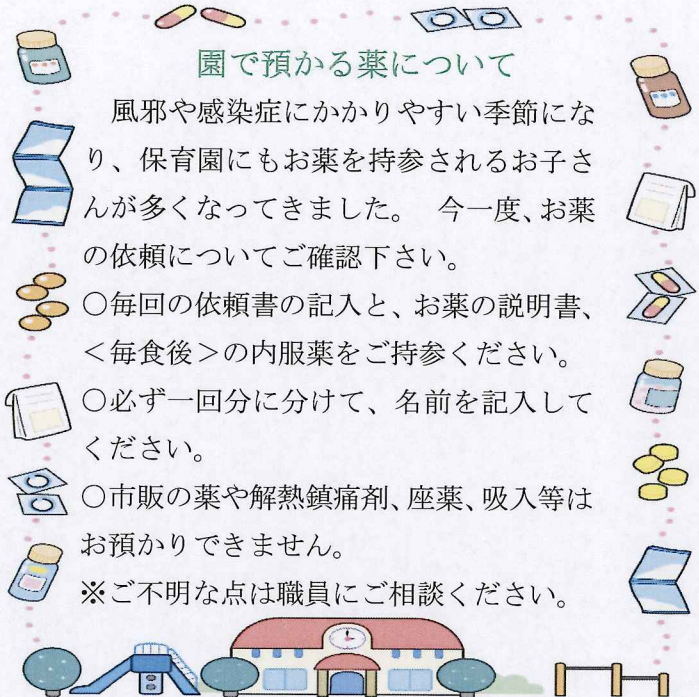 園で預かる薬について
　風邪や感染症にかかりやすい季節にな
り、保育園にもお薬を持参されるお子さ
んが多くなってきました。　今一度、お薬
の依頼についてご確認下さい。
〇毎回の依頼書の記入と、お薬の説明書、
＜毎食後＞の内服薬をご持参ください。
〇必ず一回分に分けて、名前を記入して
ください。
〇市販の薬や解熱鎮痛剤、座薬、吸入等は
お預かりできません。
※ご不明な点は職員にご相談ください。